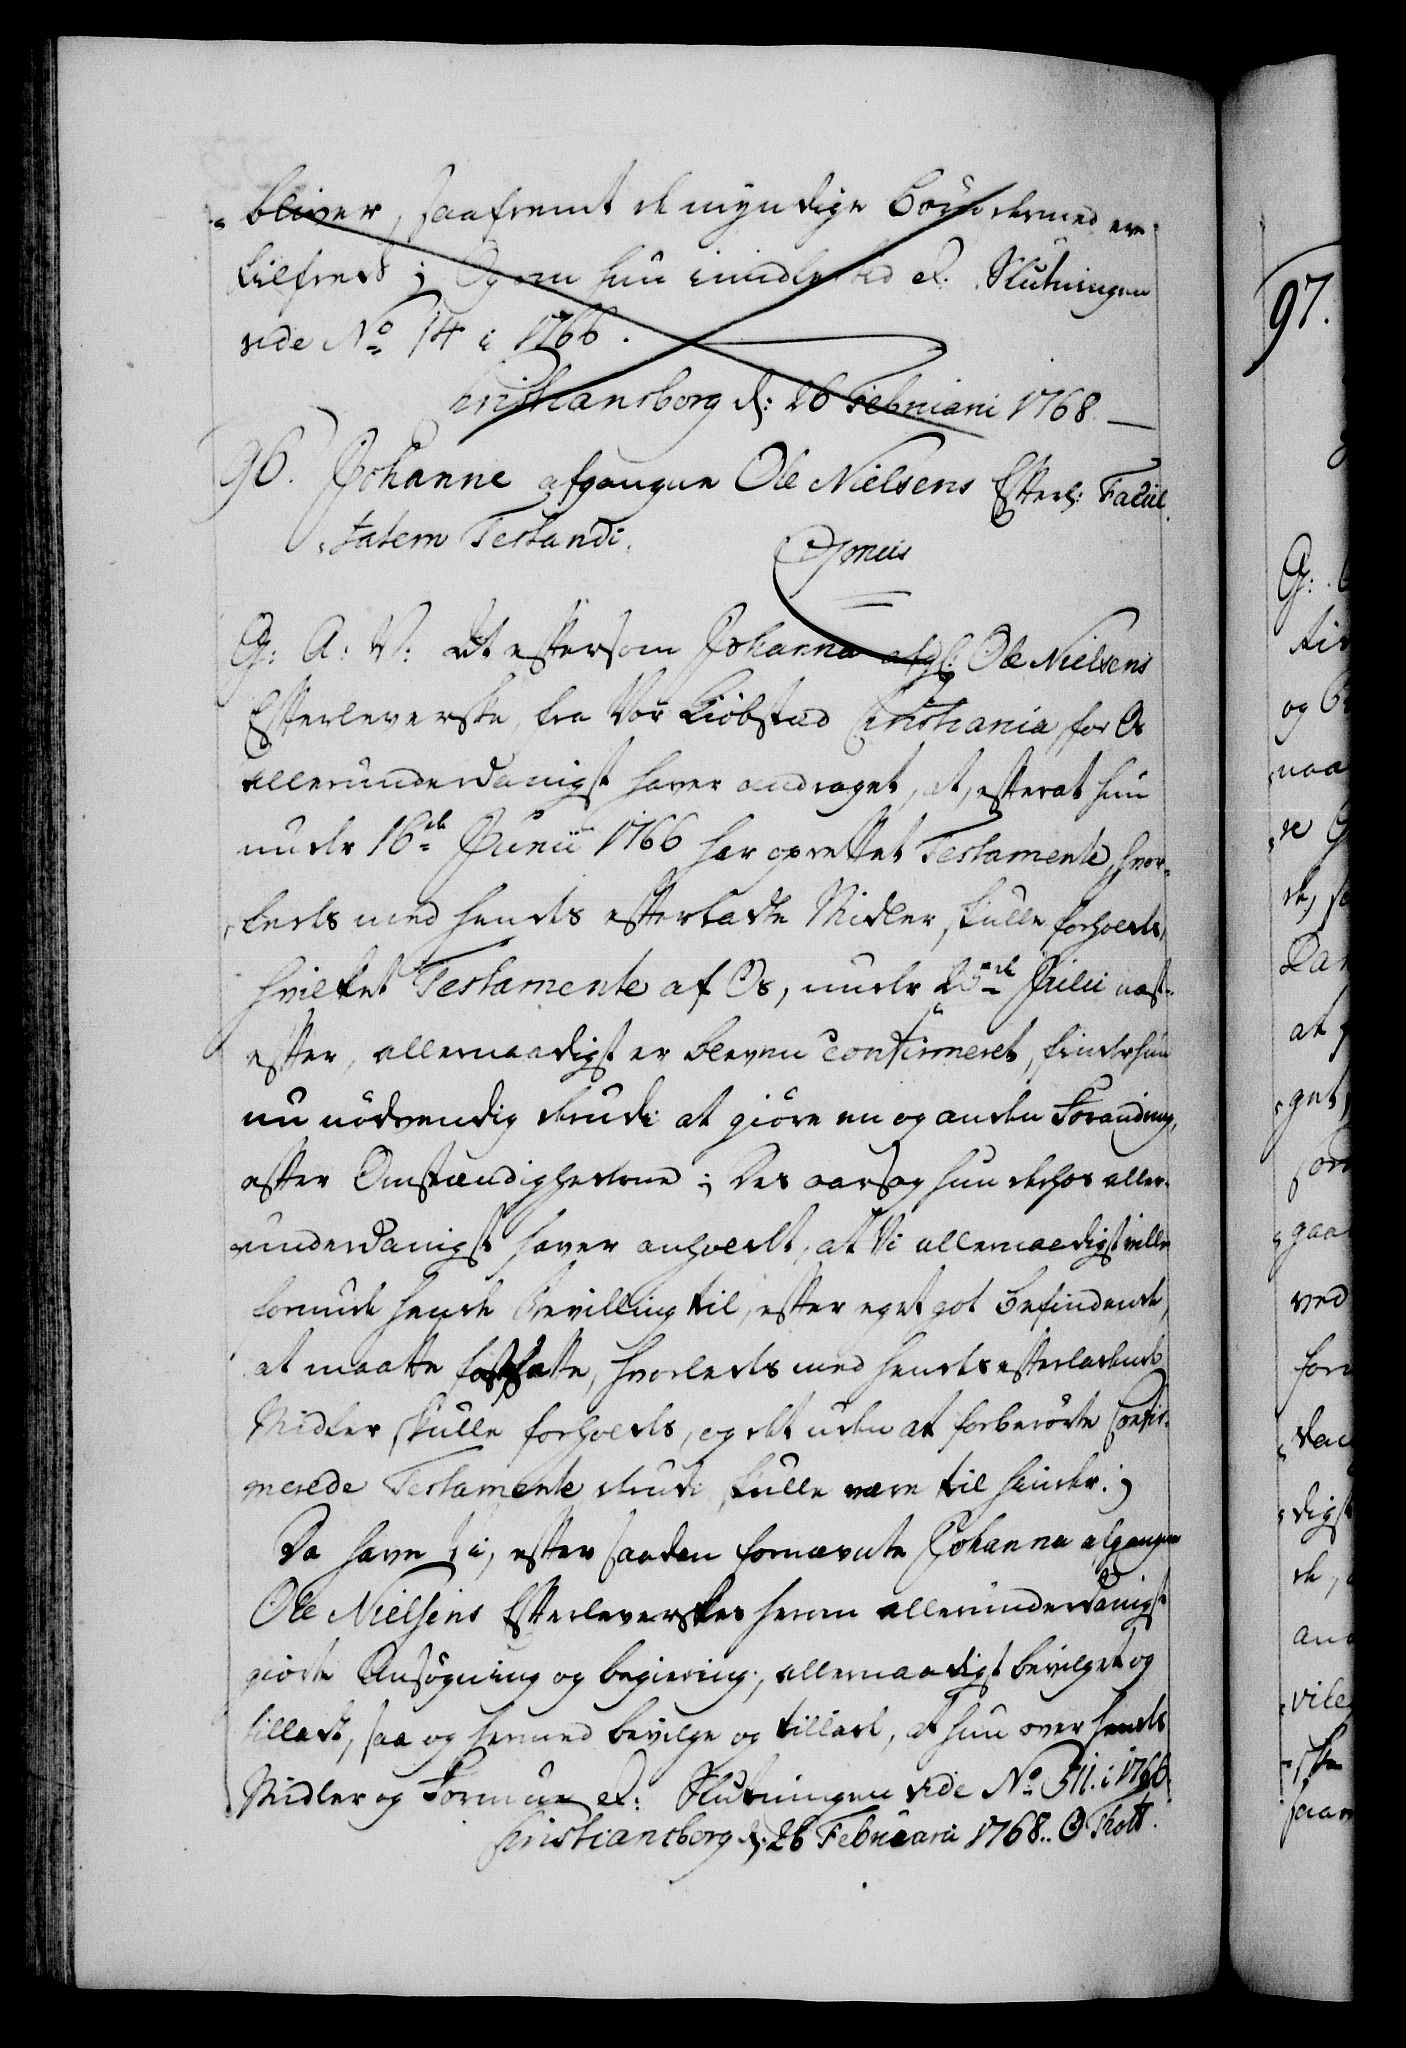 bliver, saafremt de myndige Börn dermed ere
tilfreds; Og om hun imidlertid &. Slutningen
vide No 14 i 1766.
Christiansborg d: 26 Februarii 1768. —
96. Johanne afgangne Ole Nielsens Efterl: Facul-
tatem Testandi.
Gratis
G: A: V: At eftersom Johanna afg: Ole Nielsens
Efterleverske, fra Vor Kiöbstad Christiania, for Os
allerunderdanigst haver andraget, at, efterat hun
under 16de Junii 1766 har oprettet Testamente, hvor-
ledes med hendes efterladte Midler skulle forholdes,
hvilket Testamente af Os, under 25de Julii næst-
efter, allernaadigst er bleven confirmeret, finder hun
nu nödvendig derudi at giöre en og anden Forandring,
efter Omstændighederne; Des aarsag hun derhos aller-
underdanigst haver anholdt, at Vi allernaadigst ville
forunde hende Bevilling til, efter eget got Befindende,
at maatte fastsætte, hvorledes med hendes efterladende
Midler skulle forholdes, og det uden at forberörte Confir-
merede Testamente derudi skulle være til hinder;
Da have Vi, efter saadan fornævnte Johanna afgangne
Ole Nielsens Efterleverskes herom allerunderdanigst
giorte Ansögning og begiering, allernaadigst bevilget og
tilladt, saa og hermed bevilge og tillade, at hun over hendes
Midler og Formue &: Slutningen vide No 511. i 1766.
Christiansborg d: 26 Februarii 1768. O Thott.
97.